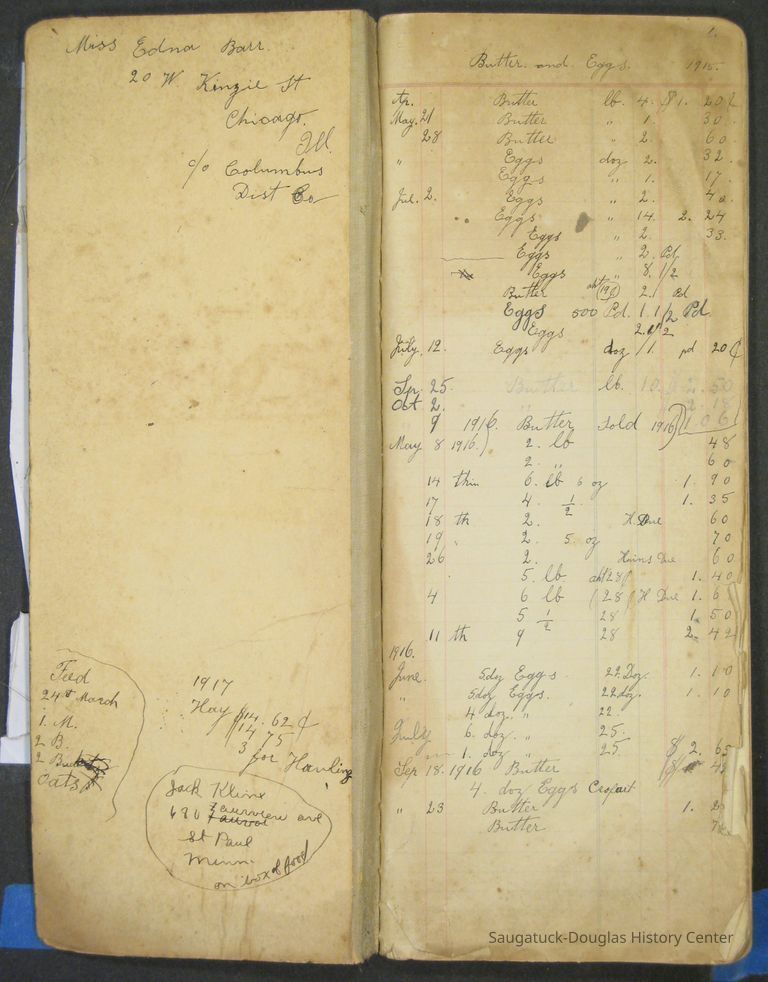 Miss Edna Barr.
20 W. Kinzie St
Chicago.
Ill.
c/o Columbus
Dist Co
Feed
24th March
1. M.
2 B.
2
Oats
1917
Hay $14.62¢
14 75
3 for Hauling
Jack Kline
690 Fairview ave
St Paul
Minn.
on box of food
1.
Butter and Eggs. 1915.
Ap. Butter lb. 4. $1. 20¢
May. 21 Butter " 1. 30.
28 Butter " 2. 60
" Eggs doz 2. 32.
Eggs " 1. 17.
Jul. 2. Eggs " 2. 40.
Eggs " 14. 2. 24
Eggs " 2. 33.
Eggs " 2. Pd.
Eggs " 8. 1/2
Butter 2.1 Pd
Eggs 500 Pd. 1.1/2 Pd.
Eggs
July. 12. Eggs doz 1. pd 20¢
Sp. 25. Butter lb. 10. 2. 50
Oct 2.
9 1916. Butter Sold 1916 1 06
May 8 1916. 2. lb 48
2. " 60
14 6. lb 6 oz 1. 90
17 4. 1/2 1. 35
18 th 2. H. Due 60
19 2. 5. oz 70
26 2. Due 60
5. lb 28 1. 40
4 6 lb (28) H Due 1. 6
5 1/2 28 1. 50
11 th 9 28 2. 42
1916.
June. 5 dz Eggs 22 Doz. 1. 10
" 5 doz Eggs. 22 doz. 1. 10
4 doz. " 22.
July 6. doz. " 25.
1. doz " 25. $2. 65
Sep 18. 1916 Butter 48
4. doz Eggs
" 23 Butter 1.
Butter
Saugatuck-Douglas History Center